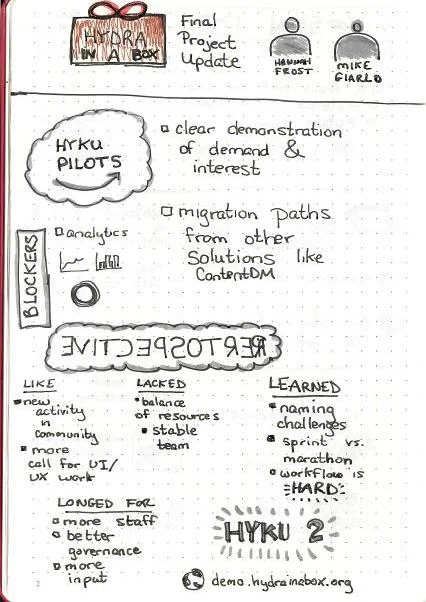 HYDRA
IN A BOX
Final
Project
Update
HANNAH
FROST
MIKE
GIARLO
HYKU
PILOTS
clear demonstration
of demand &
interest
migration paths
from other
solutions like
ContentDM
BLOCKERS
analytics
RERTOSPECTIVE
LIKE
new
activity
in
community
more
call for UI/
UX work
LACKED
balance
of resources
stable
team
LEARNED
naming
challenges
sprint vs.
marathon
workflow is
HARD
LONGED FOR
more staff
better
governance
more
input
HYKU 2
demo.hydrainabox.org
2